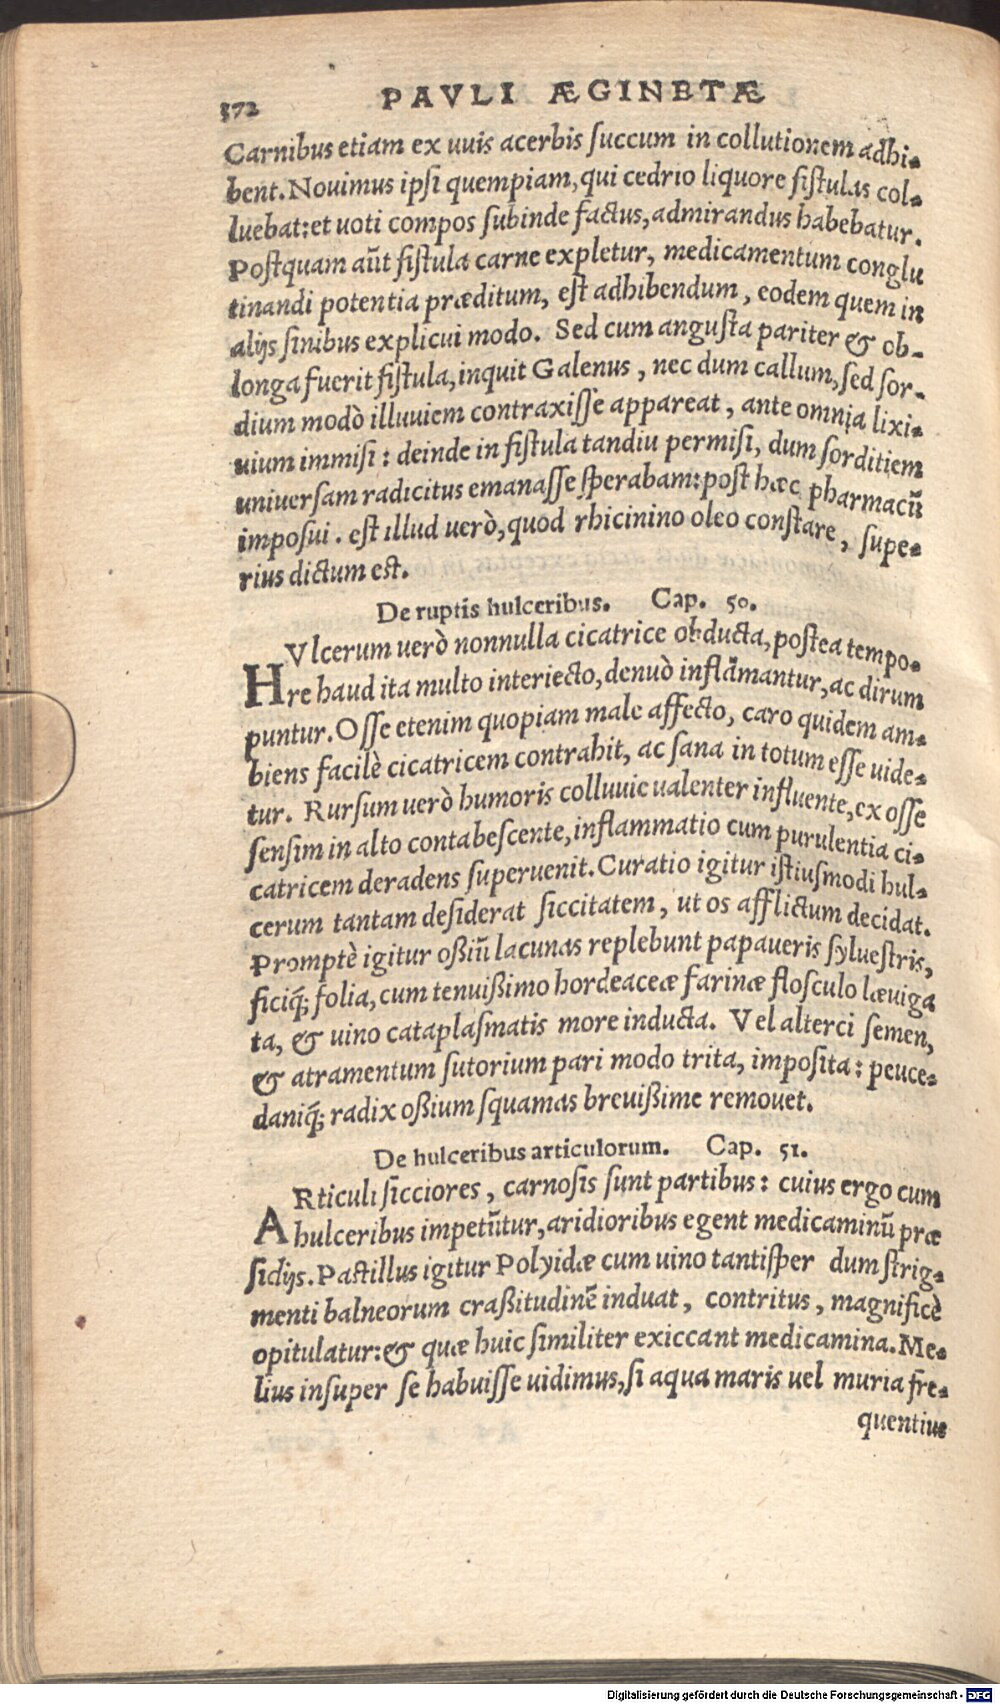 372 PAVLI ÆGINETÆ
Carnibus etiam ex uuis acerbis ſuccum in collutionem adhi-
bent. Nouimus ipſi quempiam, qui cedrio liquore fiſtulas col-
luebat: et uoti compos ſubinde factus, admirandus habebatur.
Poſtquam aūt fiſtula carne expletur, medicamentum conglu
tinandi potentia præditum, eſt adhibendum, eodem quem in
alijs ſinibus explicui modo. Sed cum anguſta pariter & ob-
longa fuerit fiſtula, inquit Galenus, nec dum callum, ſed ſor-
dium modò illuuiem contraxiſſe appareat, ante omnia lixi-
uium immiſi: deinde in fiſtula tandiu permiſi, dum ſorditiem
uniuerſam radicitus emanaſſe ſperabam: poſt hæc pharmacū
impoſui. eſt illud uerò, quod rhicinino oleo conſtare, ſupe-
rius dictum est.
De ruptis hulceribus. Cap. 50.
HVlcerum uerò nonnulla cicatrice obducta, poſtea tempo-
re haud ita multo interiecto, denuò inflāmantur, ac dirum
puntur. Oſſe etenim quopiam male affecto, caro quidem am-
biens facilè cicatricem contrahit, ac ſana in totum eſſe uide-
tur. Rurſum uerò humoris colluuie ualenter influente, ex oſſe
ſenſim in alto contabeſcente, inflammatio cum purulentia ci-
catricem deradens ſuperuenit. Curatio igitur iſtiuſmodi hul-
cerum tantam deſiderat ſiccitatem, ut os afflictum decidat.
Promptè igitur oßiū lacunas replebunt papaueris ſylueſtris,
ficiq́; folia, cum tenuißimo hordeaceæ farinæ floſculo læuiga
ta, & uino cataplaſmatis more inducta. Vel alterci ſemen,
& atramentum ſutorium pari modo trita, impoſita: peuce-
daniq́; radix oßium ſquamas breuißime remouet.
De hulceribus articulorum. Cap. 51.
ARticuli ſicciores, carnoſis ſunt partibus: cuius ergo cum
hulceribus impetūtur, aridioribus egent medicaminū præ
ſidijs. Paſtillus igitur Polyidæ cum uino tantiſper dum ſtrig-
menti balneorum craßitudinē induat, contritus, magnificè
opitulatur: & quæ huic ſimiliter exiccant medicamina. Me-
lius inſuper ſe habuiſſe uidimus, ſi aqua maris uel muria fre-
quentius
Digitalisierung gefördert durch die Deutsche Forschungsgemeinschaft - DFG